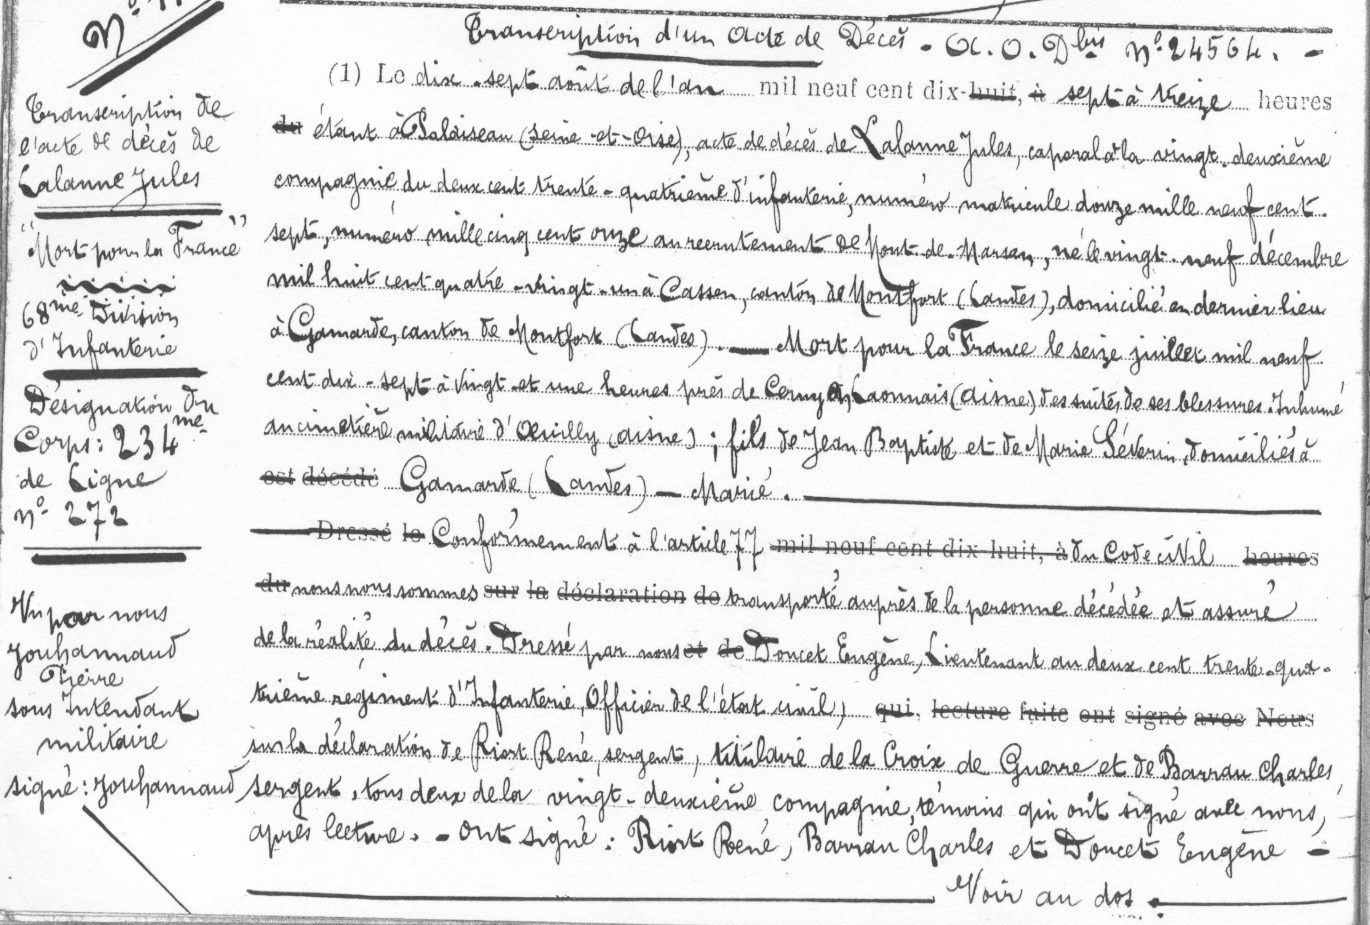 Transcription d'un Acte de Décès - A. O. Dbis No 24564. -
Transcription de
l'acte de décès de
Lalanne Jules
"Mort pour la France"
68me Division
d'Infanterie
Désignation du
Corps: 234me
de Ligne
No 272
Vu par nous
Jouhannaud
Pierre
sous Intendant
militaire
signé: Jouhannaud
(1) Le dix-sept août de l'an mil neuf cent dix-huit, à sept à treize heures
du étant à Palaiseau (Seine-et-Oise), acte de décès de Lalanne Jules, caporal à la vingt-deuxième
compagnie du deux cent trente-quatrième d'infanterie, numéro matricule douze mille neuf cent-
sept, numéro mille cinq cent onze au recrutement de Mont-de-Marsan, né le vingt-neuf décembre
mil huit cent quatre-vingt-un à Cassen, canton de Montfort (Landes), domicilié en dernier lieu
à Gamarde, canton de Montfort (Landes). — Mort pour la France le seize juillet mil neuf
cent dix-sept à vingt-et une heures près de Cerny en Laonnais (Aisne) des suites de ses blessures. Inhumé
au cimetière militaire d'Œuilly (Aisne); fils de Jean Baptiste et de Marie Séverin, domiciliés à
est décédé Gamarde (Landes) — Marié.
Dressé le Conformément à l'article 77 mil neuf cent dix-huit, à du Code civil heures
du nous nous sommes sur la déclaration de transporté auprès de la personne décédée et assuré
de la réalité du décès. Dressé par nous et de Doucet Eugène, Lieutenant au deux cent trente-qua-
trième régiment d'Infanterie, Officier de l'état civil, qui, lecture faite ont signé avec Nous
sur la déclaration de Riort René, sergent, titulaire de la Croix de Guerre et de Barrau Charles
sergent, tous deux de la vingt-deuxième compagnie, témoins qui ont signé avec nous,
après lecture. - Ont signé: Riort René, Barrau Charles et Doucet Eugène -
Voir au dos.